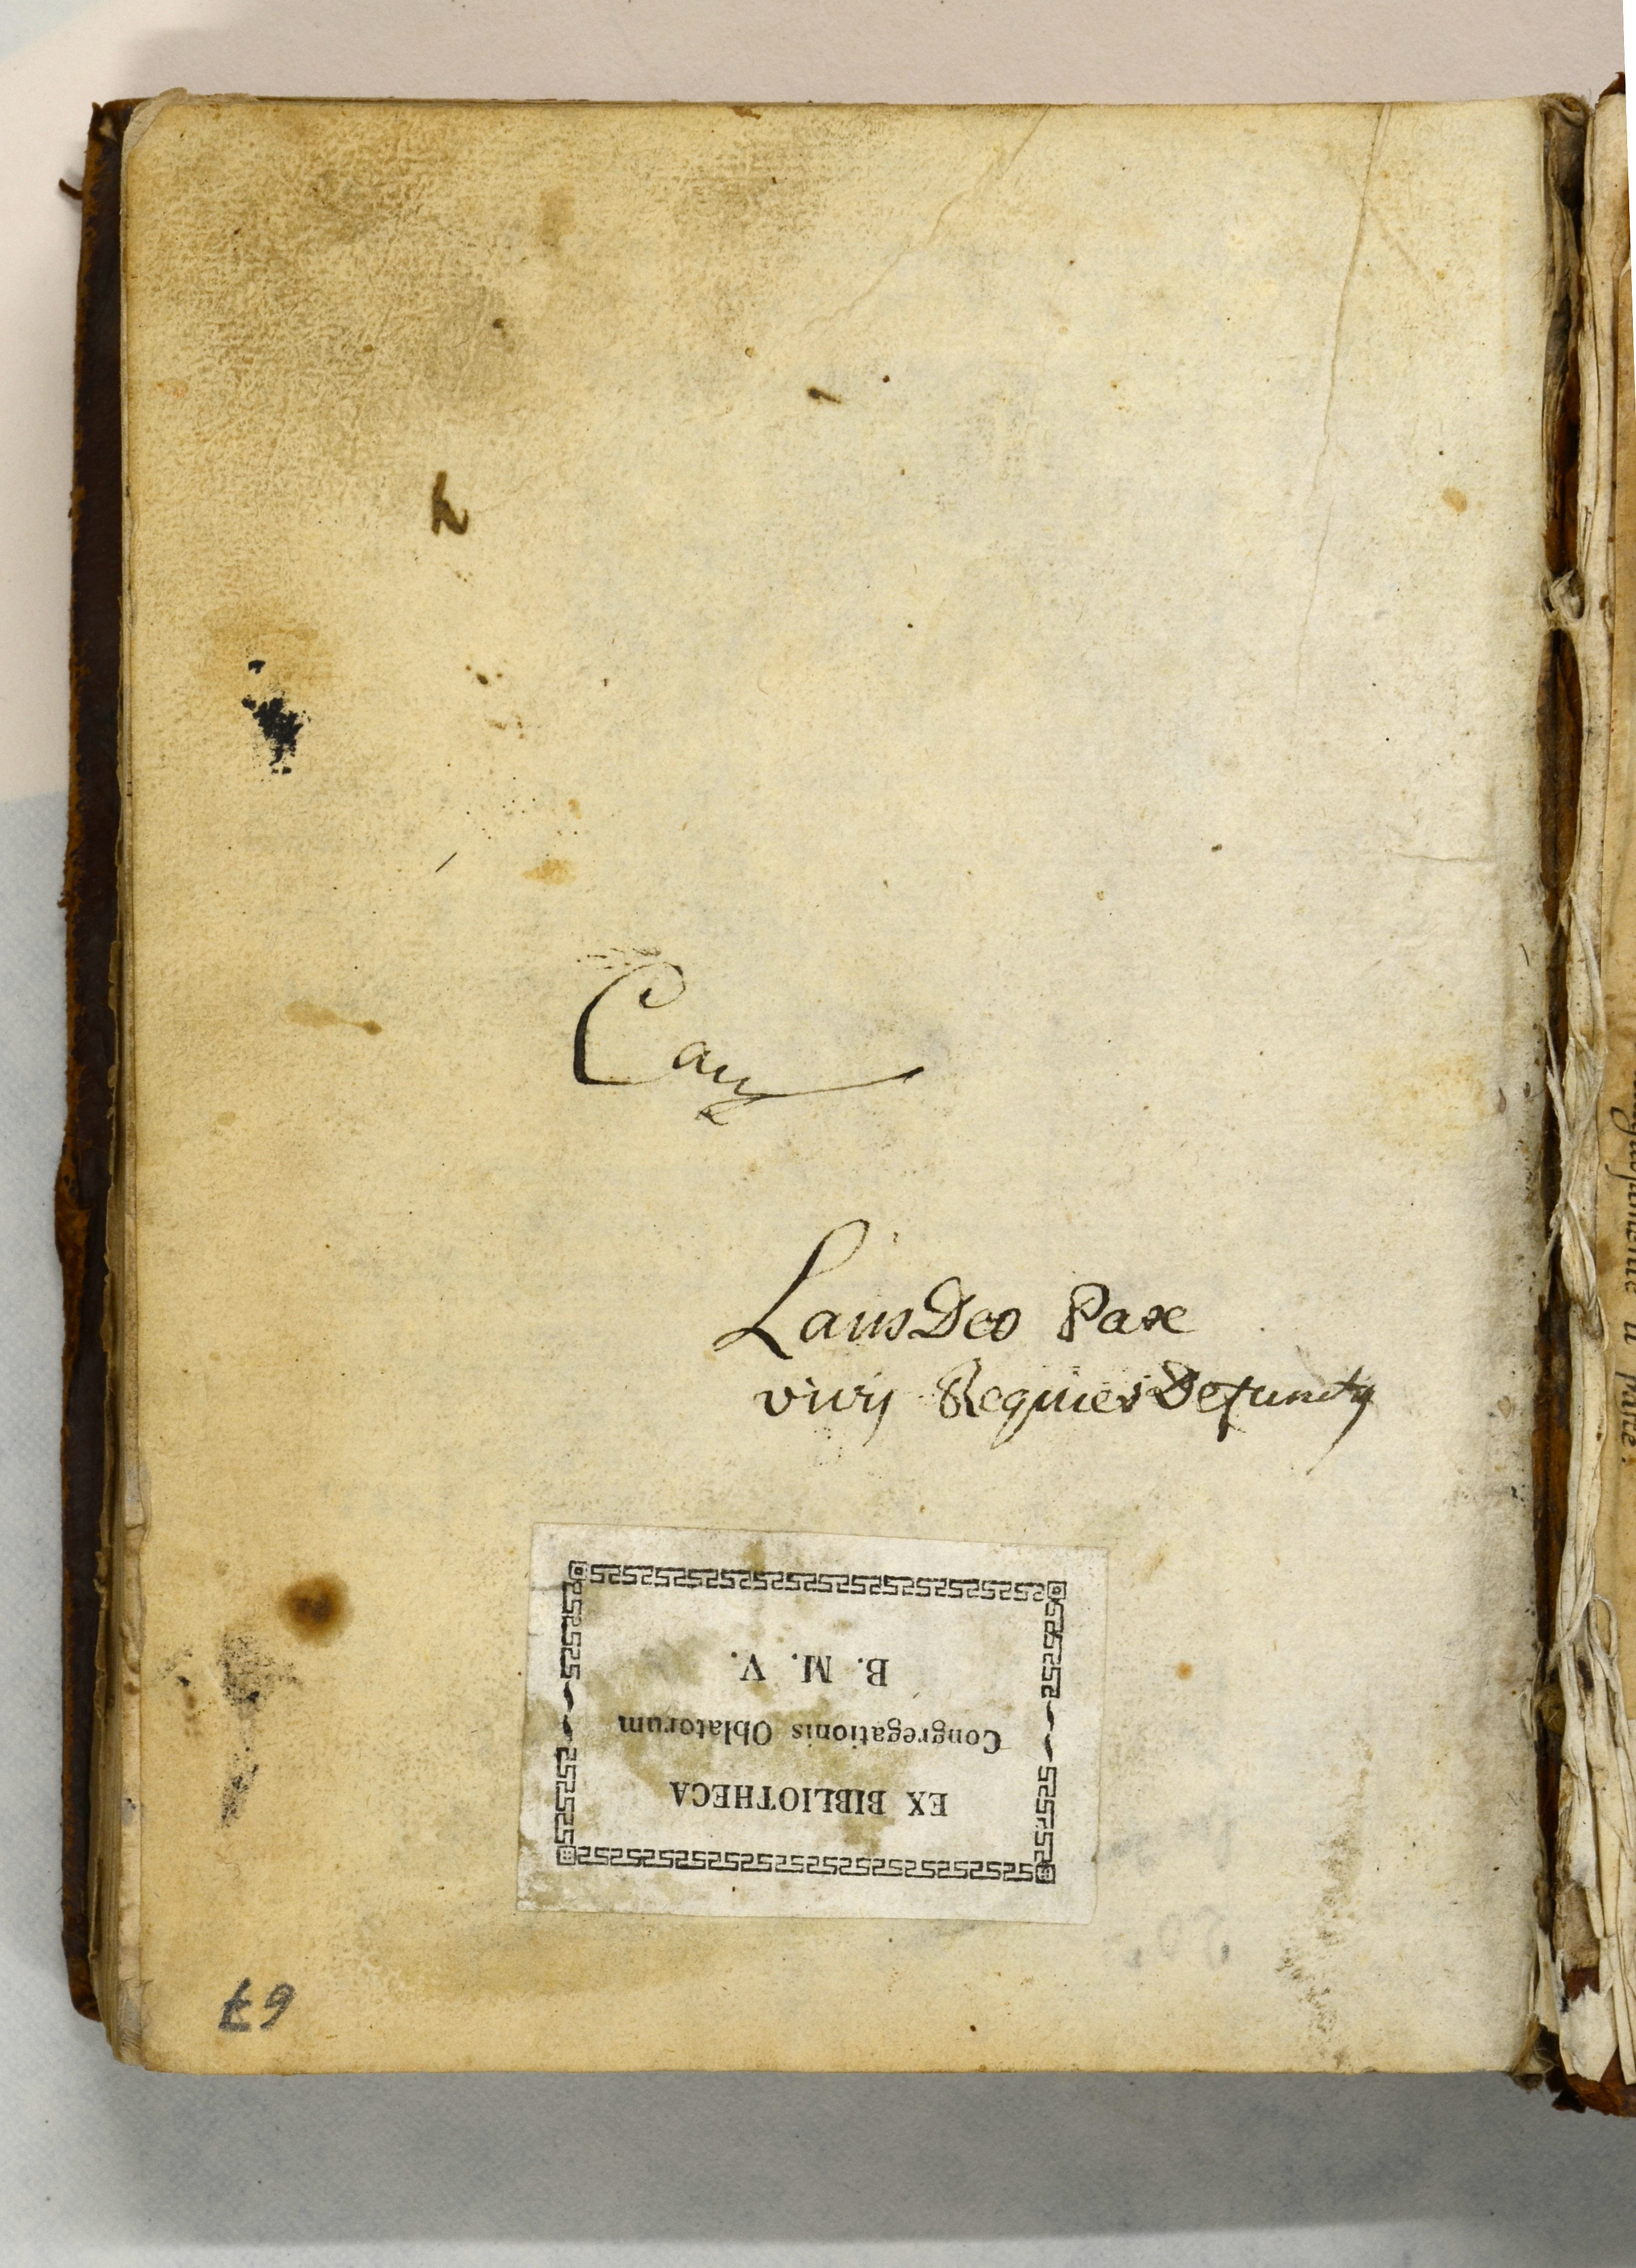 Laus Deo Pax
vivis Requies Defunctis
EX BIBLIOTHECA
Congregationis Oblatorum
B. M. V.
67